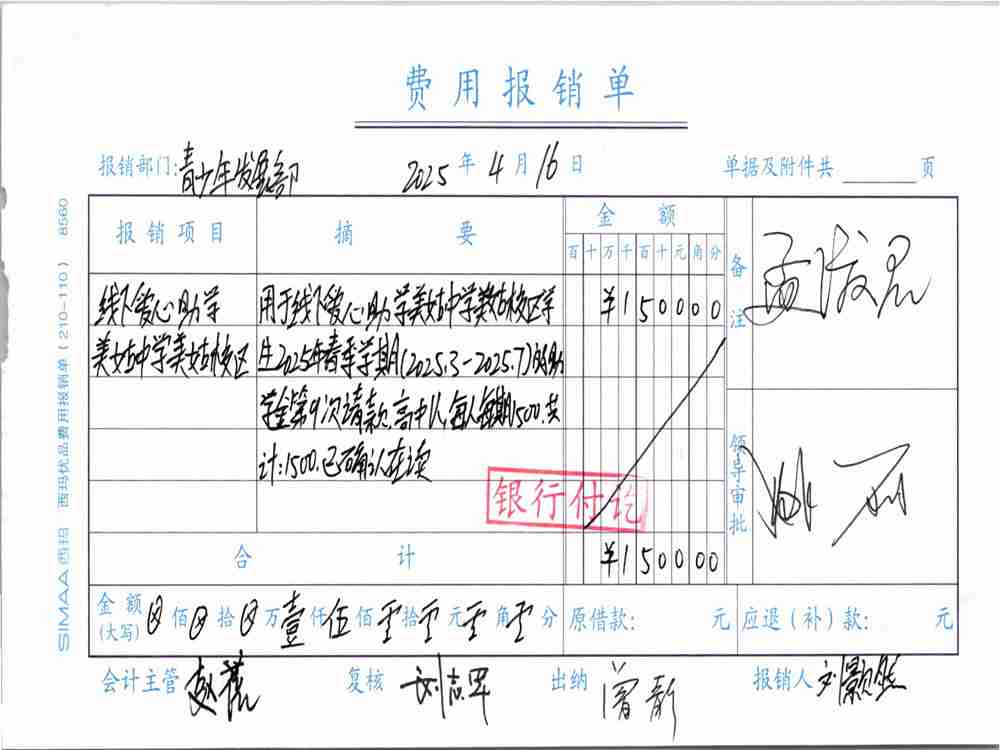 费用报销单
报销部门: 青少年发展部 2025 年 4 月 16 日 单据及附件共 页
报销项目 摘要 金额 备注
百 十 万 千 百 十 元 角 分
线下爱心助学 用于线下爱心助学美姑中学美姑校区学 ¥150000
美姑中学美姑校区 生2025年春季学期(2025.3-2025.7)的助
学金第9次请款,高中1人,每人每期1500.共
计:1500.已确认在读
银行付讫
领导审批
合计 ¥150000
金额(大写) 佰 拾 万 壹 仟 伍 佰 零 拾 零 元 零 角 零 分 原借款: 元 应退(补)款: 元
会计主管 复核 刘志军 出纳 曾新 报销人 刘颢然
SIMAA 西玛 西玛优品费用报销单(210-110) 8560